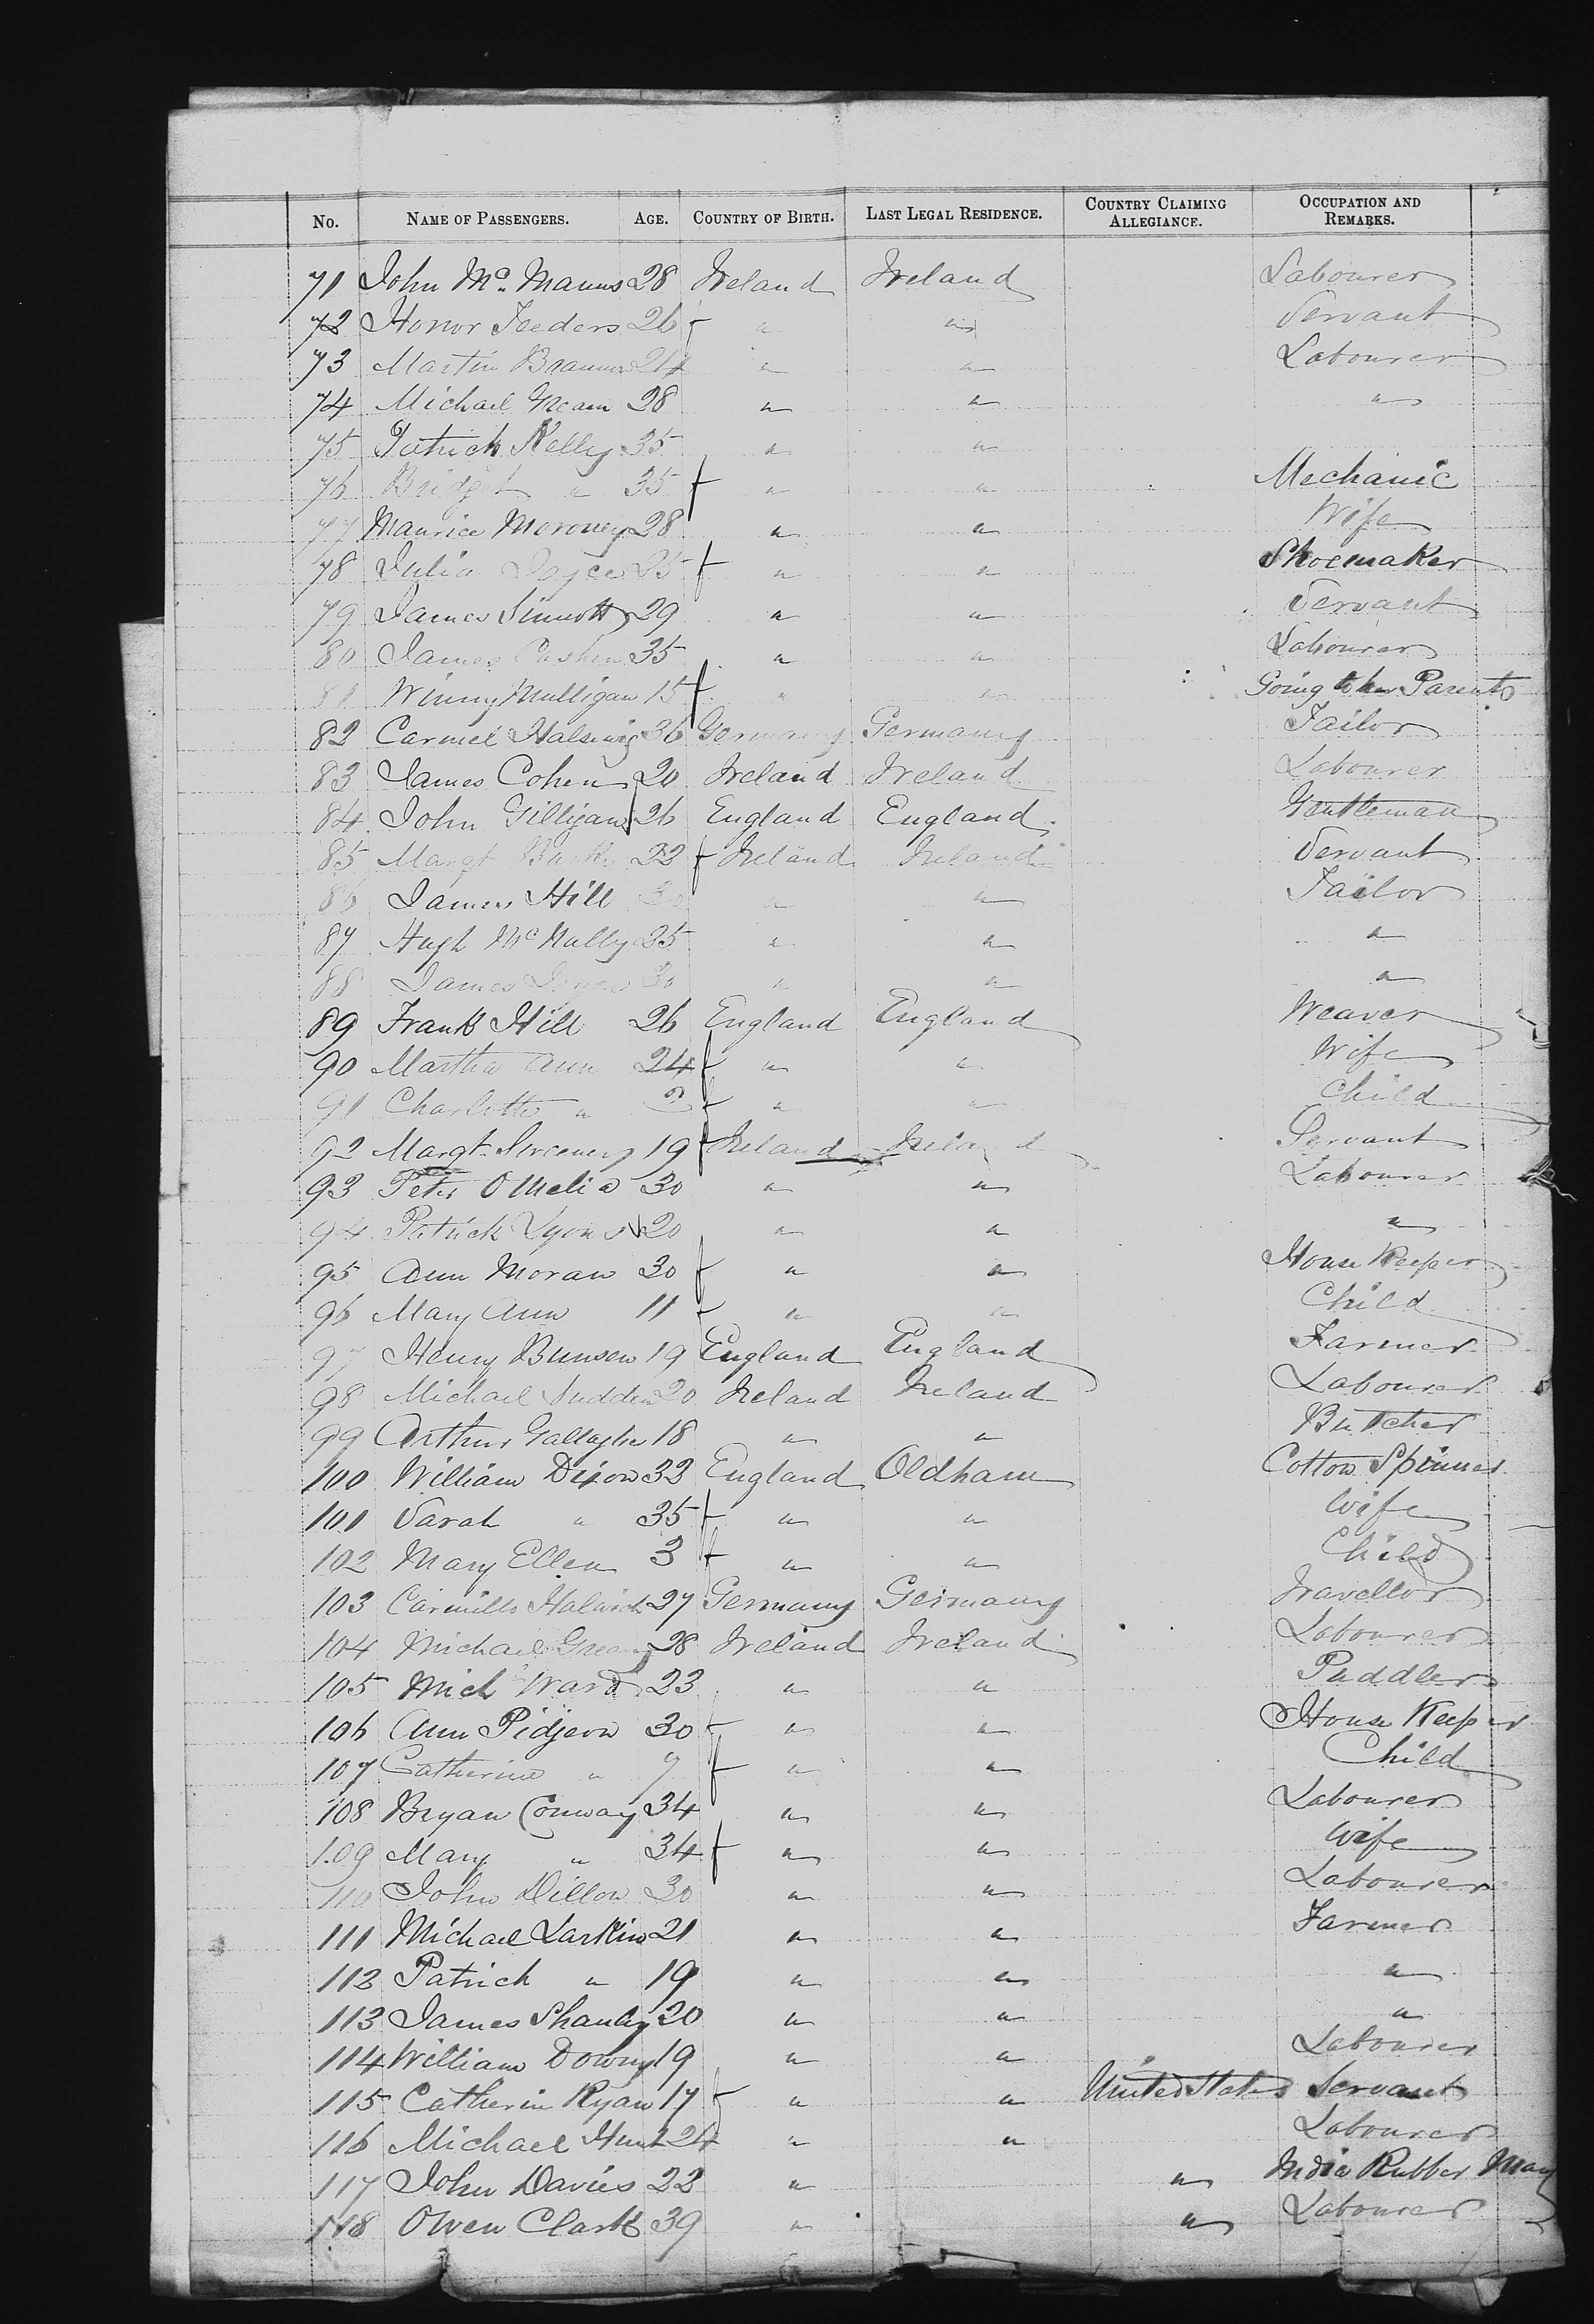 No. NAME OF PASSENGERS. AGE. COUNTRY OF BIRTH. LAST LEGAL RESIDENCE. COUNTRY CLAIMING ALLEGIANCE. OCCUPATION AND REMARKS.
71 John Mc. Manus 28 Ireland Ireland Labourer
72 Honor 26 " " Servant
73 Martin 24 " " Labourer
74 Michael 28 " " "
75 Patrick Kelly 35 " "
76 Bridget " 35 " " Mechanic
77 Maurice Moroney 28 " " Wife
78 Julia Joyce 25 " " Shoemaker
79 James Sinnott 29 " " Servant
80 James 35 " " Labourer
81 Winny Mulligan 15 " " Going to her Parents
82 36 Germany Germany Tailor
83 James Cohen 20 Ireland Ireland Labourer
84 John Gilligan 26 England England Gentleman
85 Margt Burke 22 Ireland Ireland Servant
86 James Hill 30 " " Tailor
87 Hugh Mc Nally 25 " " "
88 James Joyce 30 " " "
89 Frank Hill 26 England England Weaver
90 Martha Ann 24 " " Wife
91 Charlotte " " " Child
92 Margt Sweeney 19 Ireland Ireland Servant
93 Peter O Melia 30 " " Labourer
94 Patrick Lyons 20 " " "
95 Ann Moran 30 " " House Keeper
96 Mary Ann 11 " " Child
97 Henry Bunsen 19 England England Farmer
98 Michael 20 Ireland Ireland Labourer
99 Arthur Gallagher 18 " " Butcher
100 William Dixon 33 England Oldham Cotton Spinner
101 Sarah " 35 " " Wife
102 Mary Ellen 3 " " Child
103 27 Germany Germany Travellor
104 Michael 28 Ireland Ireland Labourer
105 Mich Ward 23 " " Puddler
106 Ann Pidjeon 30 " " House Keeper
107 Catherine " 7 " " Child
108 Bryan Conway 34 " " Labourer
109 Mary " 34 " " Wife
110 John Dillon 30 " " Labourer
111 Michael Larkin 21 " " Farmer
112 Patrick " 19 " " "
113 James Shanly 20 " " "
114 William Downy 19 " " Labourer
115 Catherin Ryan 17 " " United States Servant
116 Michael Hunt 24 " " Labourer
117 John Davies 22 " " India Rubber Man
118 Owen Clark 39 " " Labourer